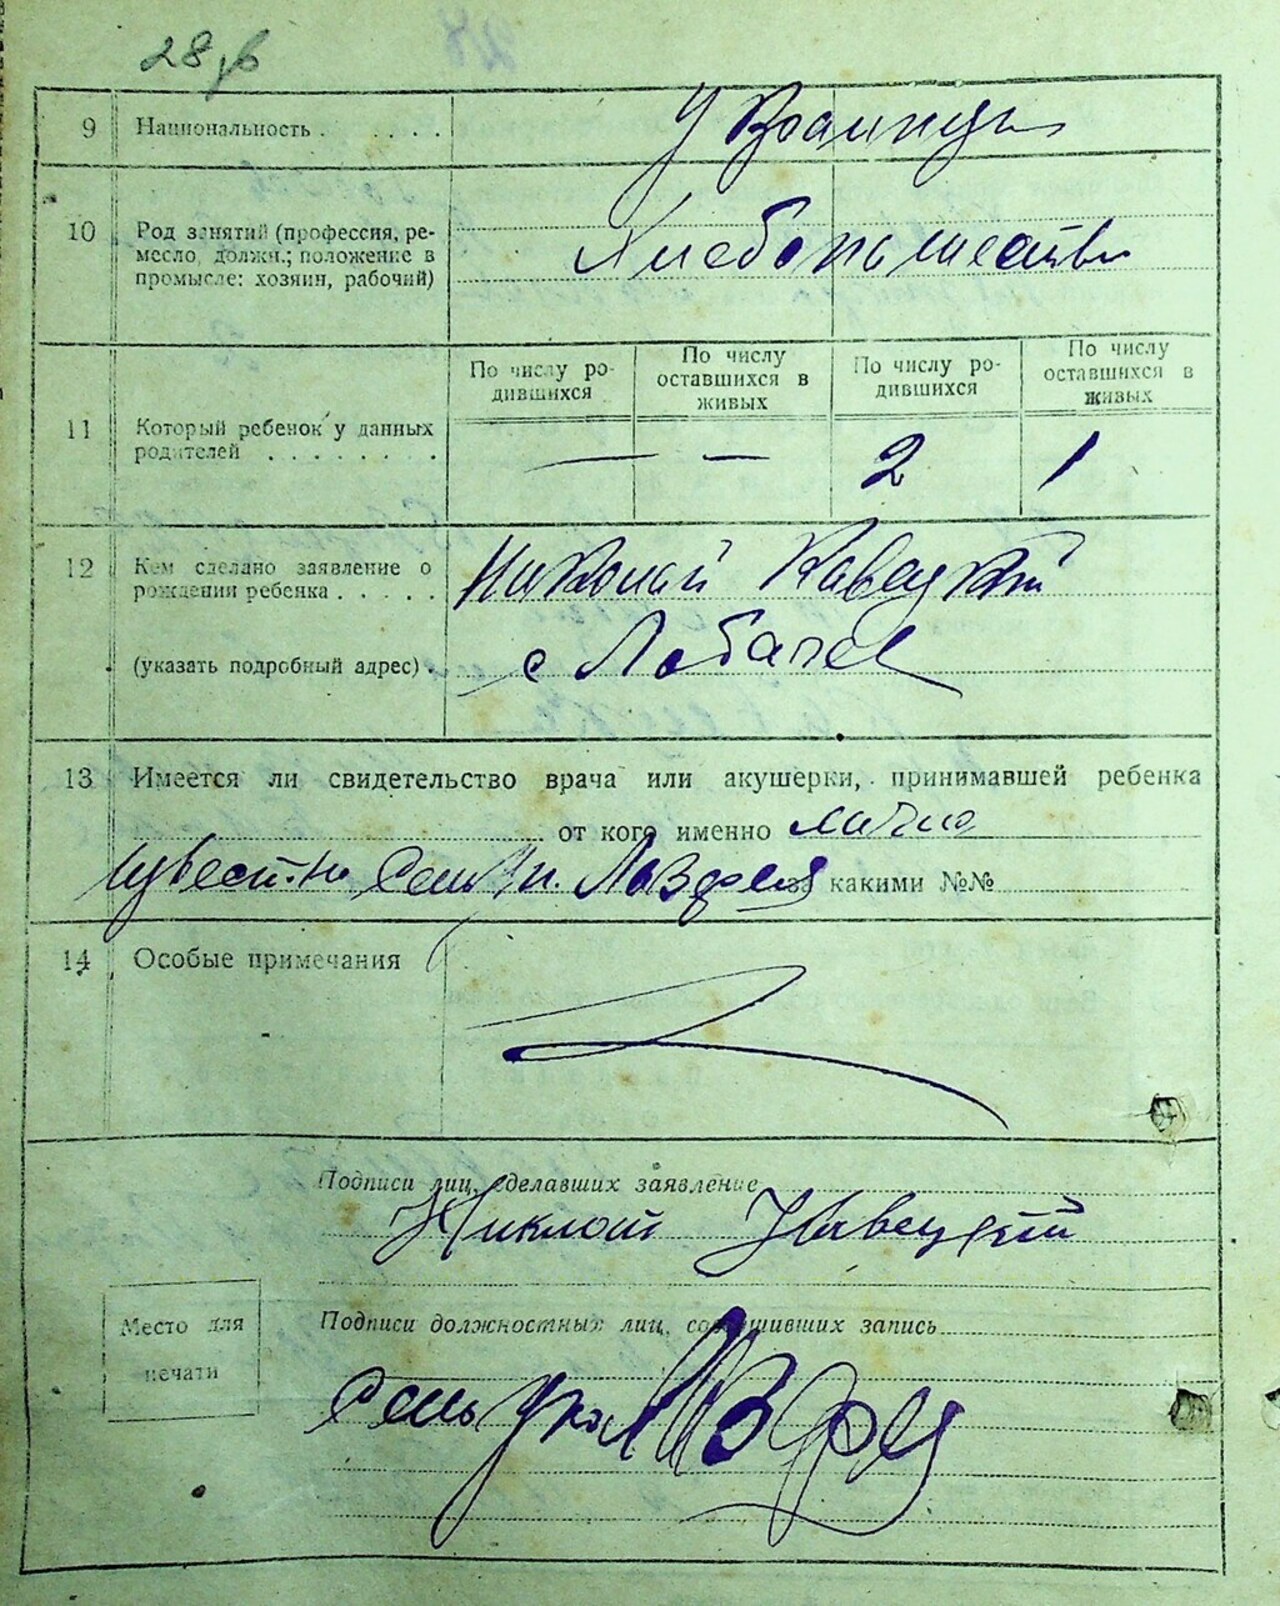 28 зв
9 Национальность . . . . . Украинцы
10 Род занятий (профессия, ре-
месло, должн.; положение в
промысле: хозяин, рабочий)
Хлебопашество
По числу ро-
дившихся
По числу
оставшихся в
живых
По числу ро-
дившихся
По числу
оставшихся в
живых
11 Который ребенок у данных
родителей . . . . . . . .
— — 2 1
12 Кем сделано заявление о
рождении ребенка . . . . .
Николай Кавецкий
(указать подробный адрес) .
с Лобачев
13 Имеется ли свидетельство врача или акушерки, принимавшей ребенка
от кого именно лично
известно за какими №№
14 Особые примечания
Подписи лиц, сделавших заявление
Николай Кавецкий
Подписи должностных лиц, совершивших запись
Место для
печати